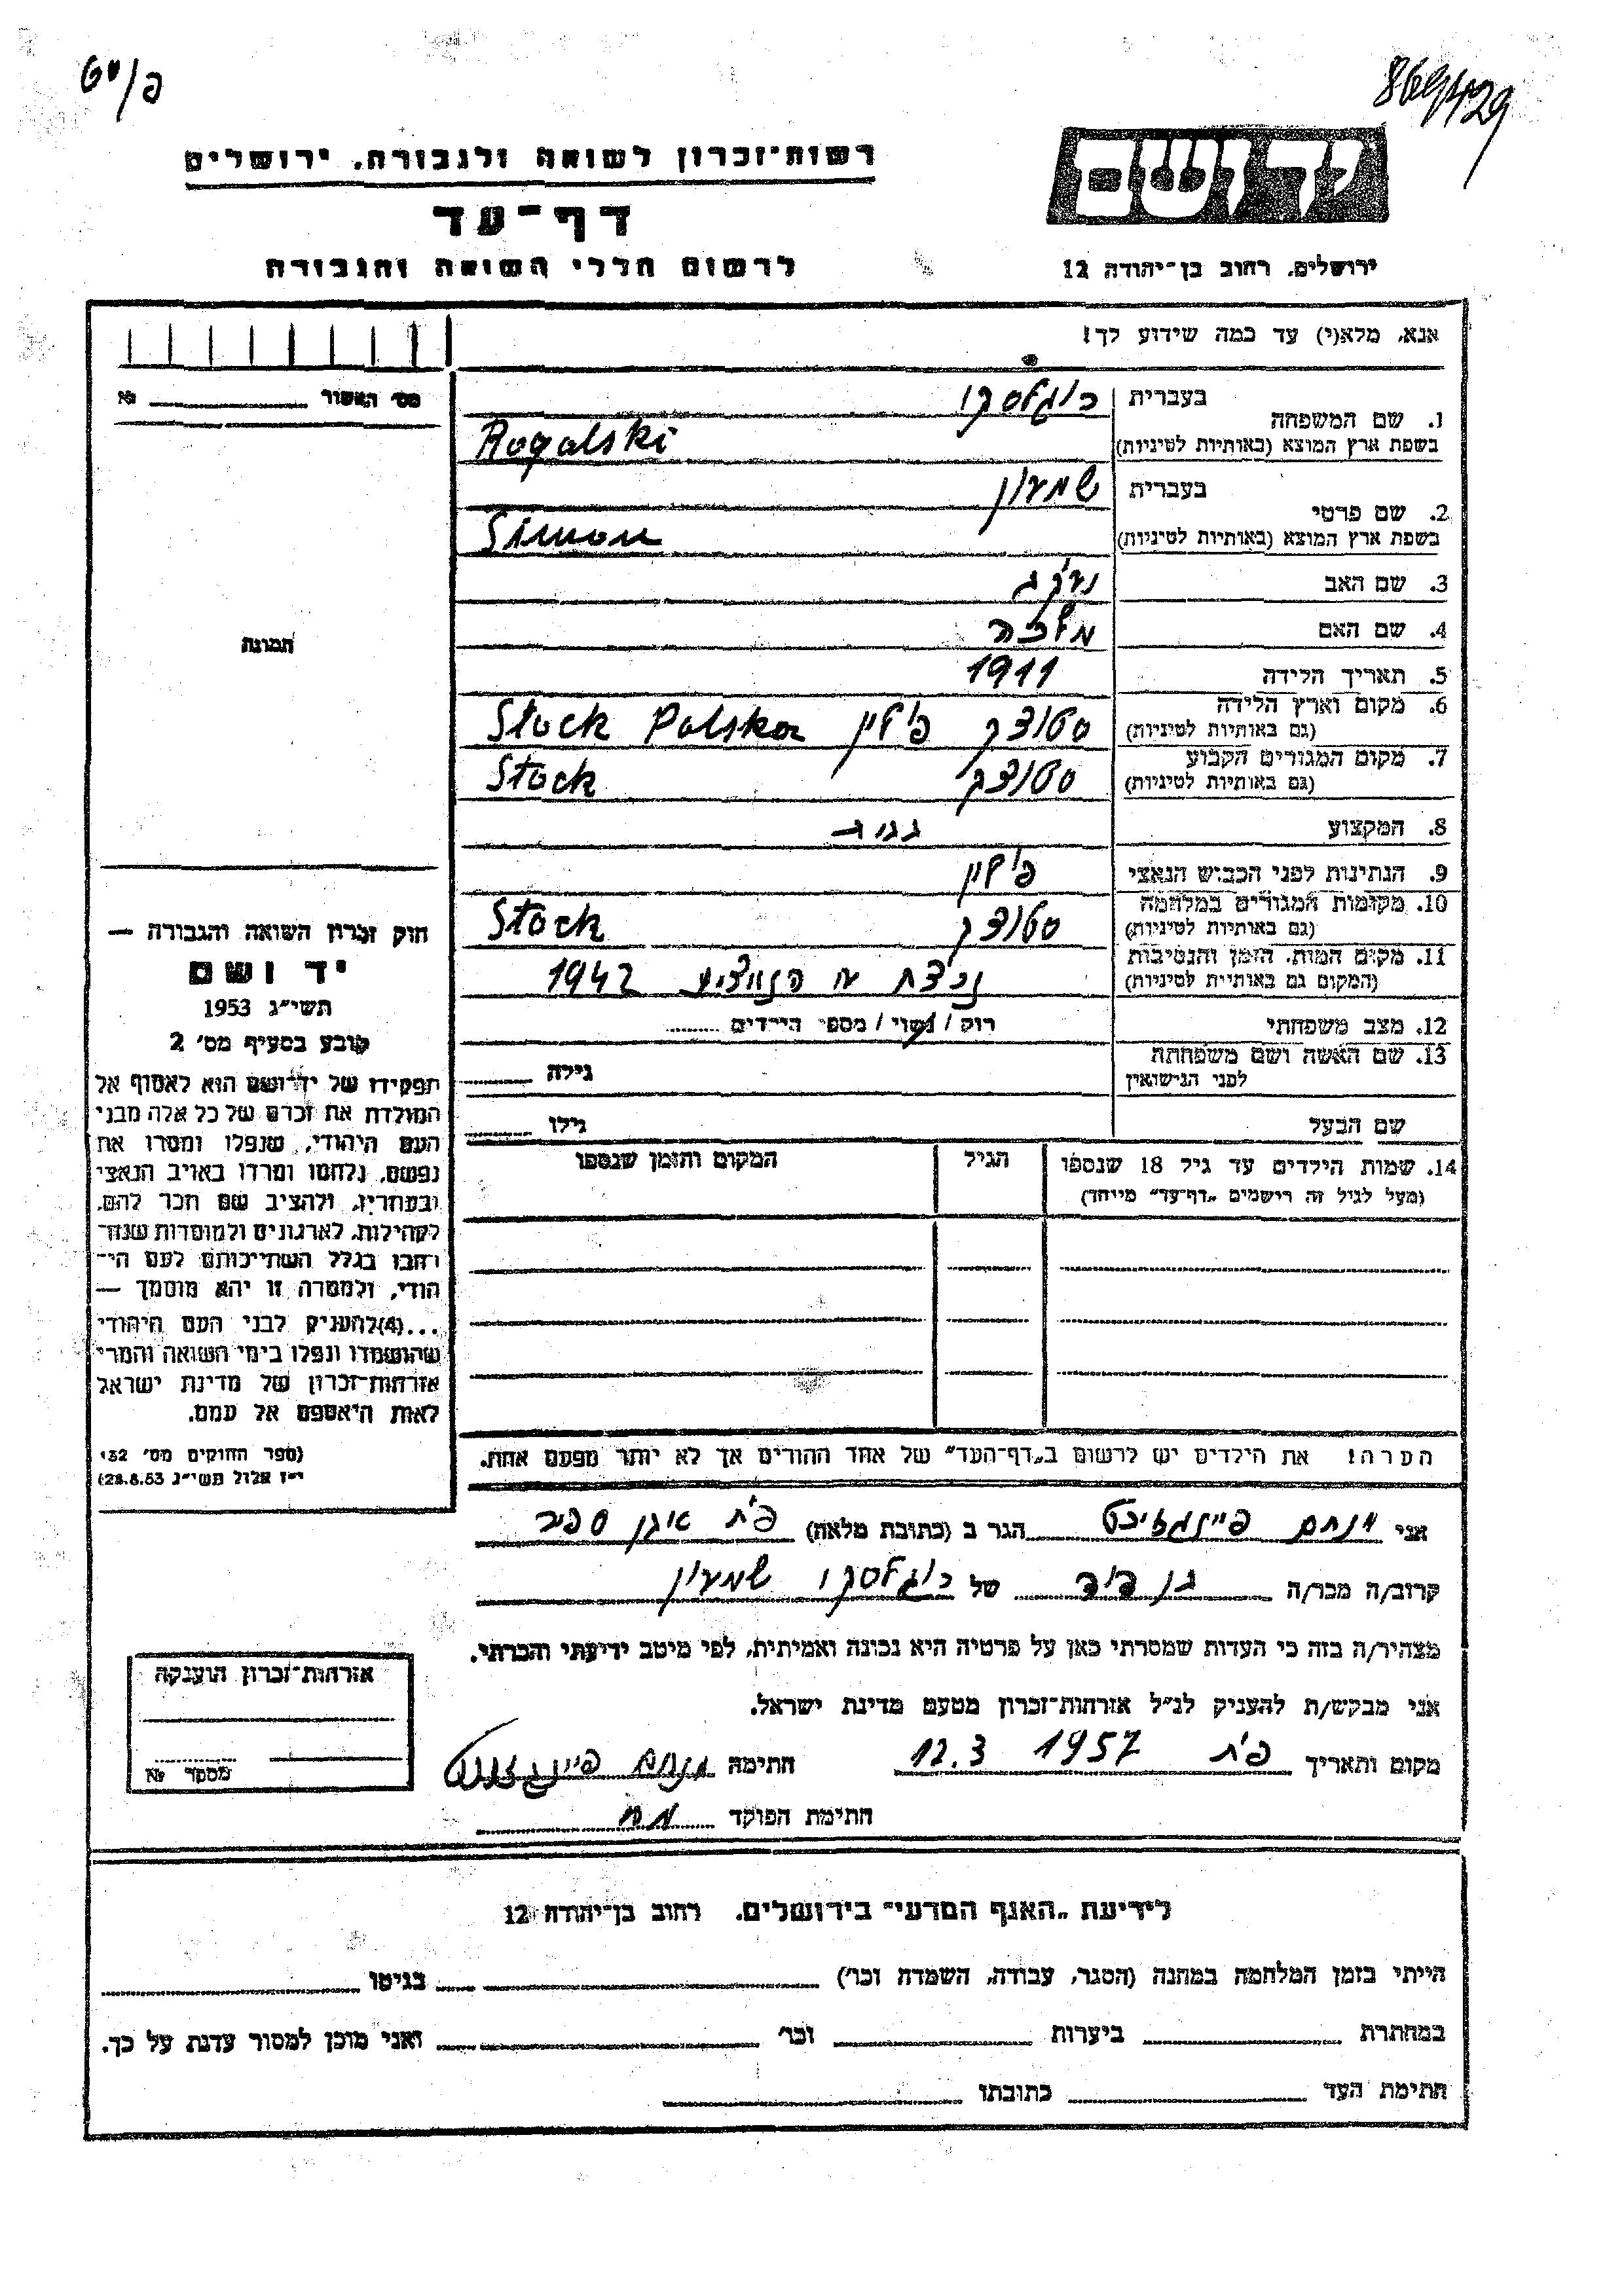 869/429
יד ושם
רשות־זכרון לשואה ולגבורה, ירושלים
דף־עד
לרשום חללי השואה והגבורה
ירושלים, רחוב בן־יהודה 12
אנא, מלא(י) עד כמה שידוע לך!
מס' האשור № ______
1. שם המשפחה בעברית רוגלסקי
בשפת ארץ המוצא (באותיות לטיניות) Rogalski
2. שם פרטי בעברית שמעון
בשפת ארץ המוצא (באותיות לטיניות) Simon
3. שם האב
4. שם האם מלכה
5. תאריך הלידה 1911
6. מקום וארץ הלידה סטוצק פולין Stock Polska
(גם באותיות לטיניות)
7. מקום המגורים הקבוע סטוצק Stock
(גם באותיות לטיניות)
8. המקצוע
9. הנתינות לפני הכביש הנאצי פולין
10. מקומות המגורים במלחמה סטוצק Stock
(גם באותיות לטיניות)
11. מקום המות, הזמן והנסיבות 1942
(המקום גם באותיות לטיניות)
12. מצב משפחתי רוק / נשוי / מספר הילדים ........
13. שם האשה ושם משפחתה גילה
לפני הנישואין
שם הבעל גילו
14. שמות הילדים עד גיל 18 שנספו הגיל המקום והזמן שנספו
(מעל לגיל זה רישמים „דף־עד” מייחד)
הערה! את הילדים יש לרשום ב„דף־העד” של אחד ההורים אך לא יותר מפעם אחת.
תמונה
חוק זכרון השואה והגבורה —
יד ושם
תשי״ג 1953
קובע בסעיף מס' 2
תפקידו של יד־ושם הוא לאסוף אל
המולדת את זכרם של כל אלה מבני
העם היהודי, שנפלו ומסרו את
נפשם, נלחמו ומרדו באויב הנאצי
ובעוזריו, ולהציב שם וזכר להם,
לקהילות, לארגונים ולמוסדות שנח־
רבו בגלל השתייכותם לעם הי־
הודי, ולמטרה זו יהא מוסמך —
...(4)להעניק לבני העם היהודי
שהושמדו ונפלו בימי השואה והמרי
אזרחות־זכרון של מדינת ישראל
לאות היאספם אל עמם.
(ספר החוקים מס' 132,
י״ז אלול תשי״ג 28.8.53)
אני מנחם הגר ב (כתובת מלאה) פ״ת
קרוב/ה מכר/ה בן דוד של רוגלסקי שמעון
מצהיר/ה בזה כי העדות שמסרתי כאן על פרטיה היא נכונה ואמיתית, לפי מיטב ידיעתי והכרתי.
אני מבקש/ת להעניק לנ״ל אזרחות־זכרון מטעם מדינת ישראל.
מקום ותאריך פ״ת 1957 12.3 חתימה מנחם
חתימת הפוקד
אזרחות־זכרון הוענקה
מספר №
לידיעת „האגף המדעי” בירושלים, רחוב בן־יהודה 12
הייתי בזמן המלחמה במחנה (הסגר, עבודה, השמדה וכו') ______ בגיטו ______
במחתרת ______ ביערות ______ וכו' ______ ואני מוכן למסור עדות על כך.
חתימת העד ______ כתובתו ______